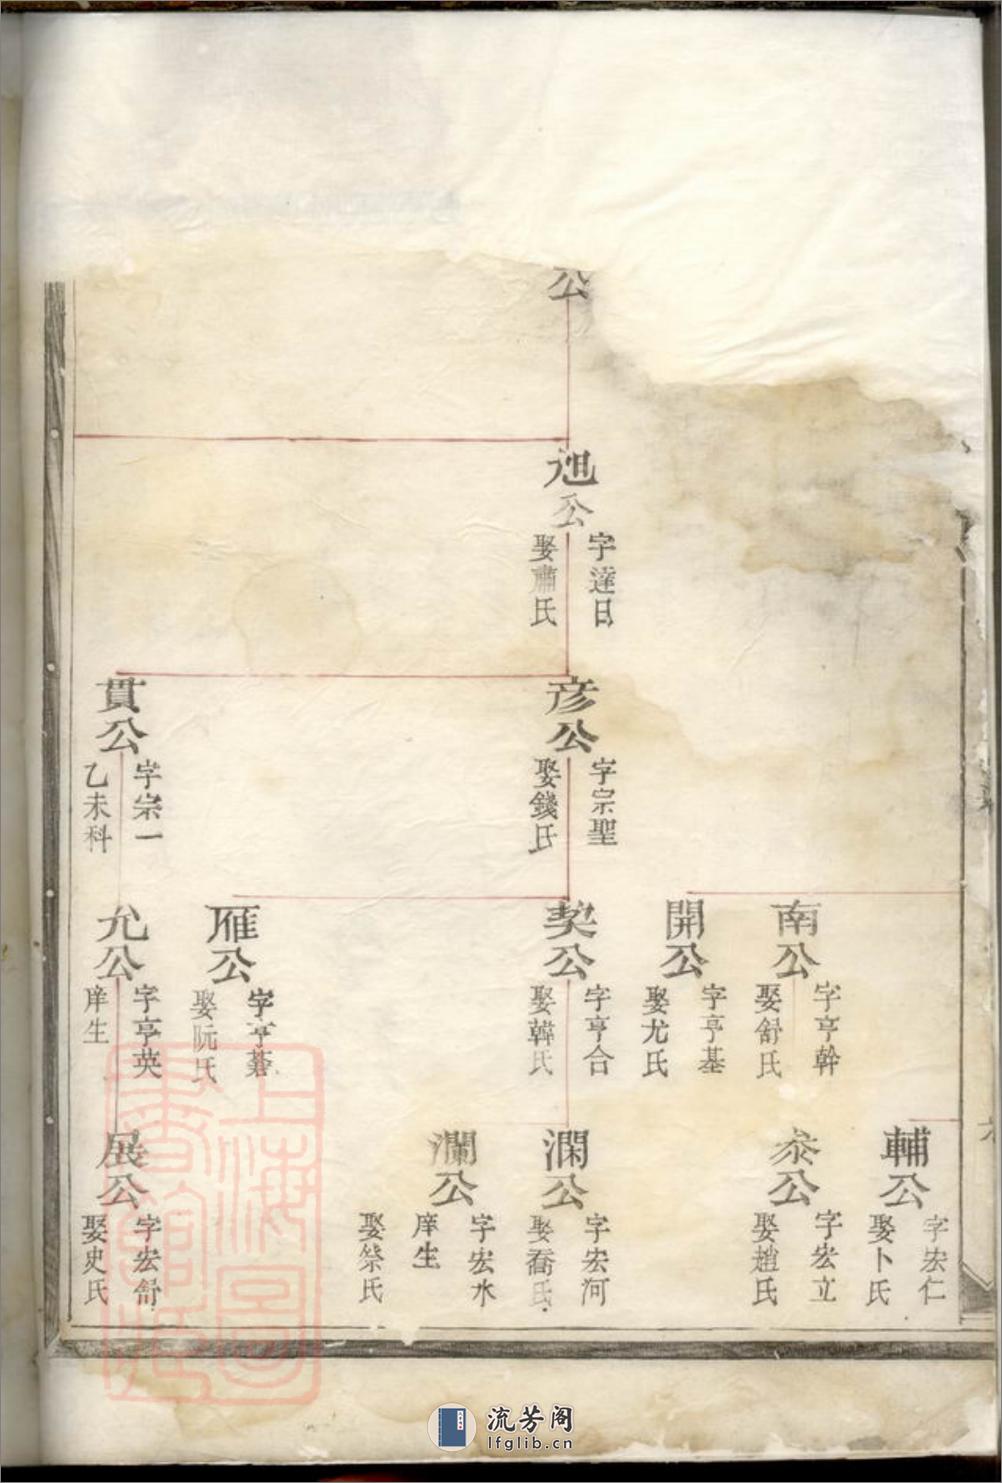 公
公
字達日
娶蕭氏
彦公
字宗聖
娶錢氏
貫公
字宗一
乙未科
南公
字亨幹
娶舒氏
開公
字亨基
娶尤氏
契公
字亨合
娶韓氏
雁公
字亨
娶阮氏
允公
字亨英
庠生
輔公
字宏仁
娶卜氏
公
字宏立
娶趙氏
澗公
字宏河
娶喬氏
瀾公
字宏水
庠生
娶 氏
展公
字宏舒
娶史氏
上海圖書館藏
流芳阁
lfglib.cn